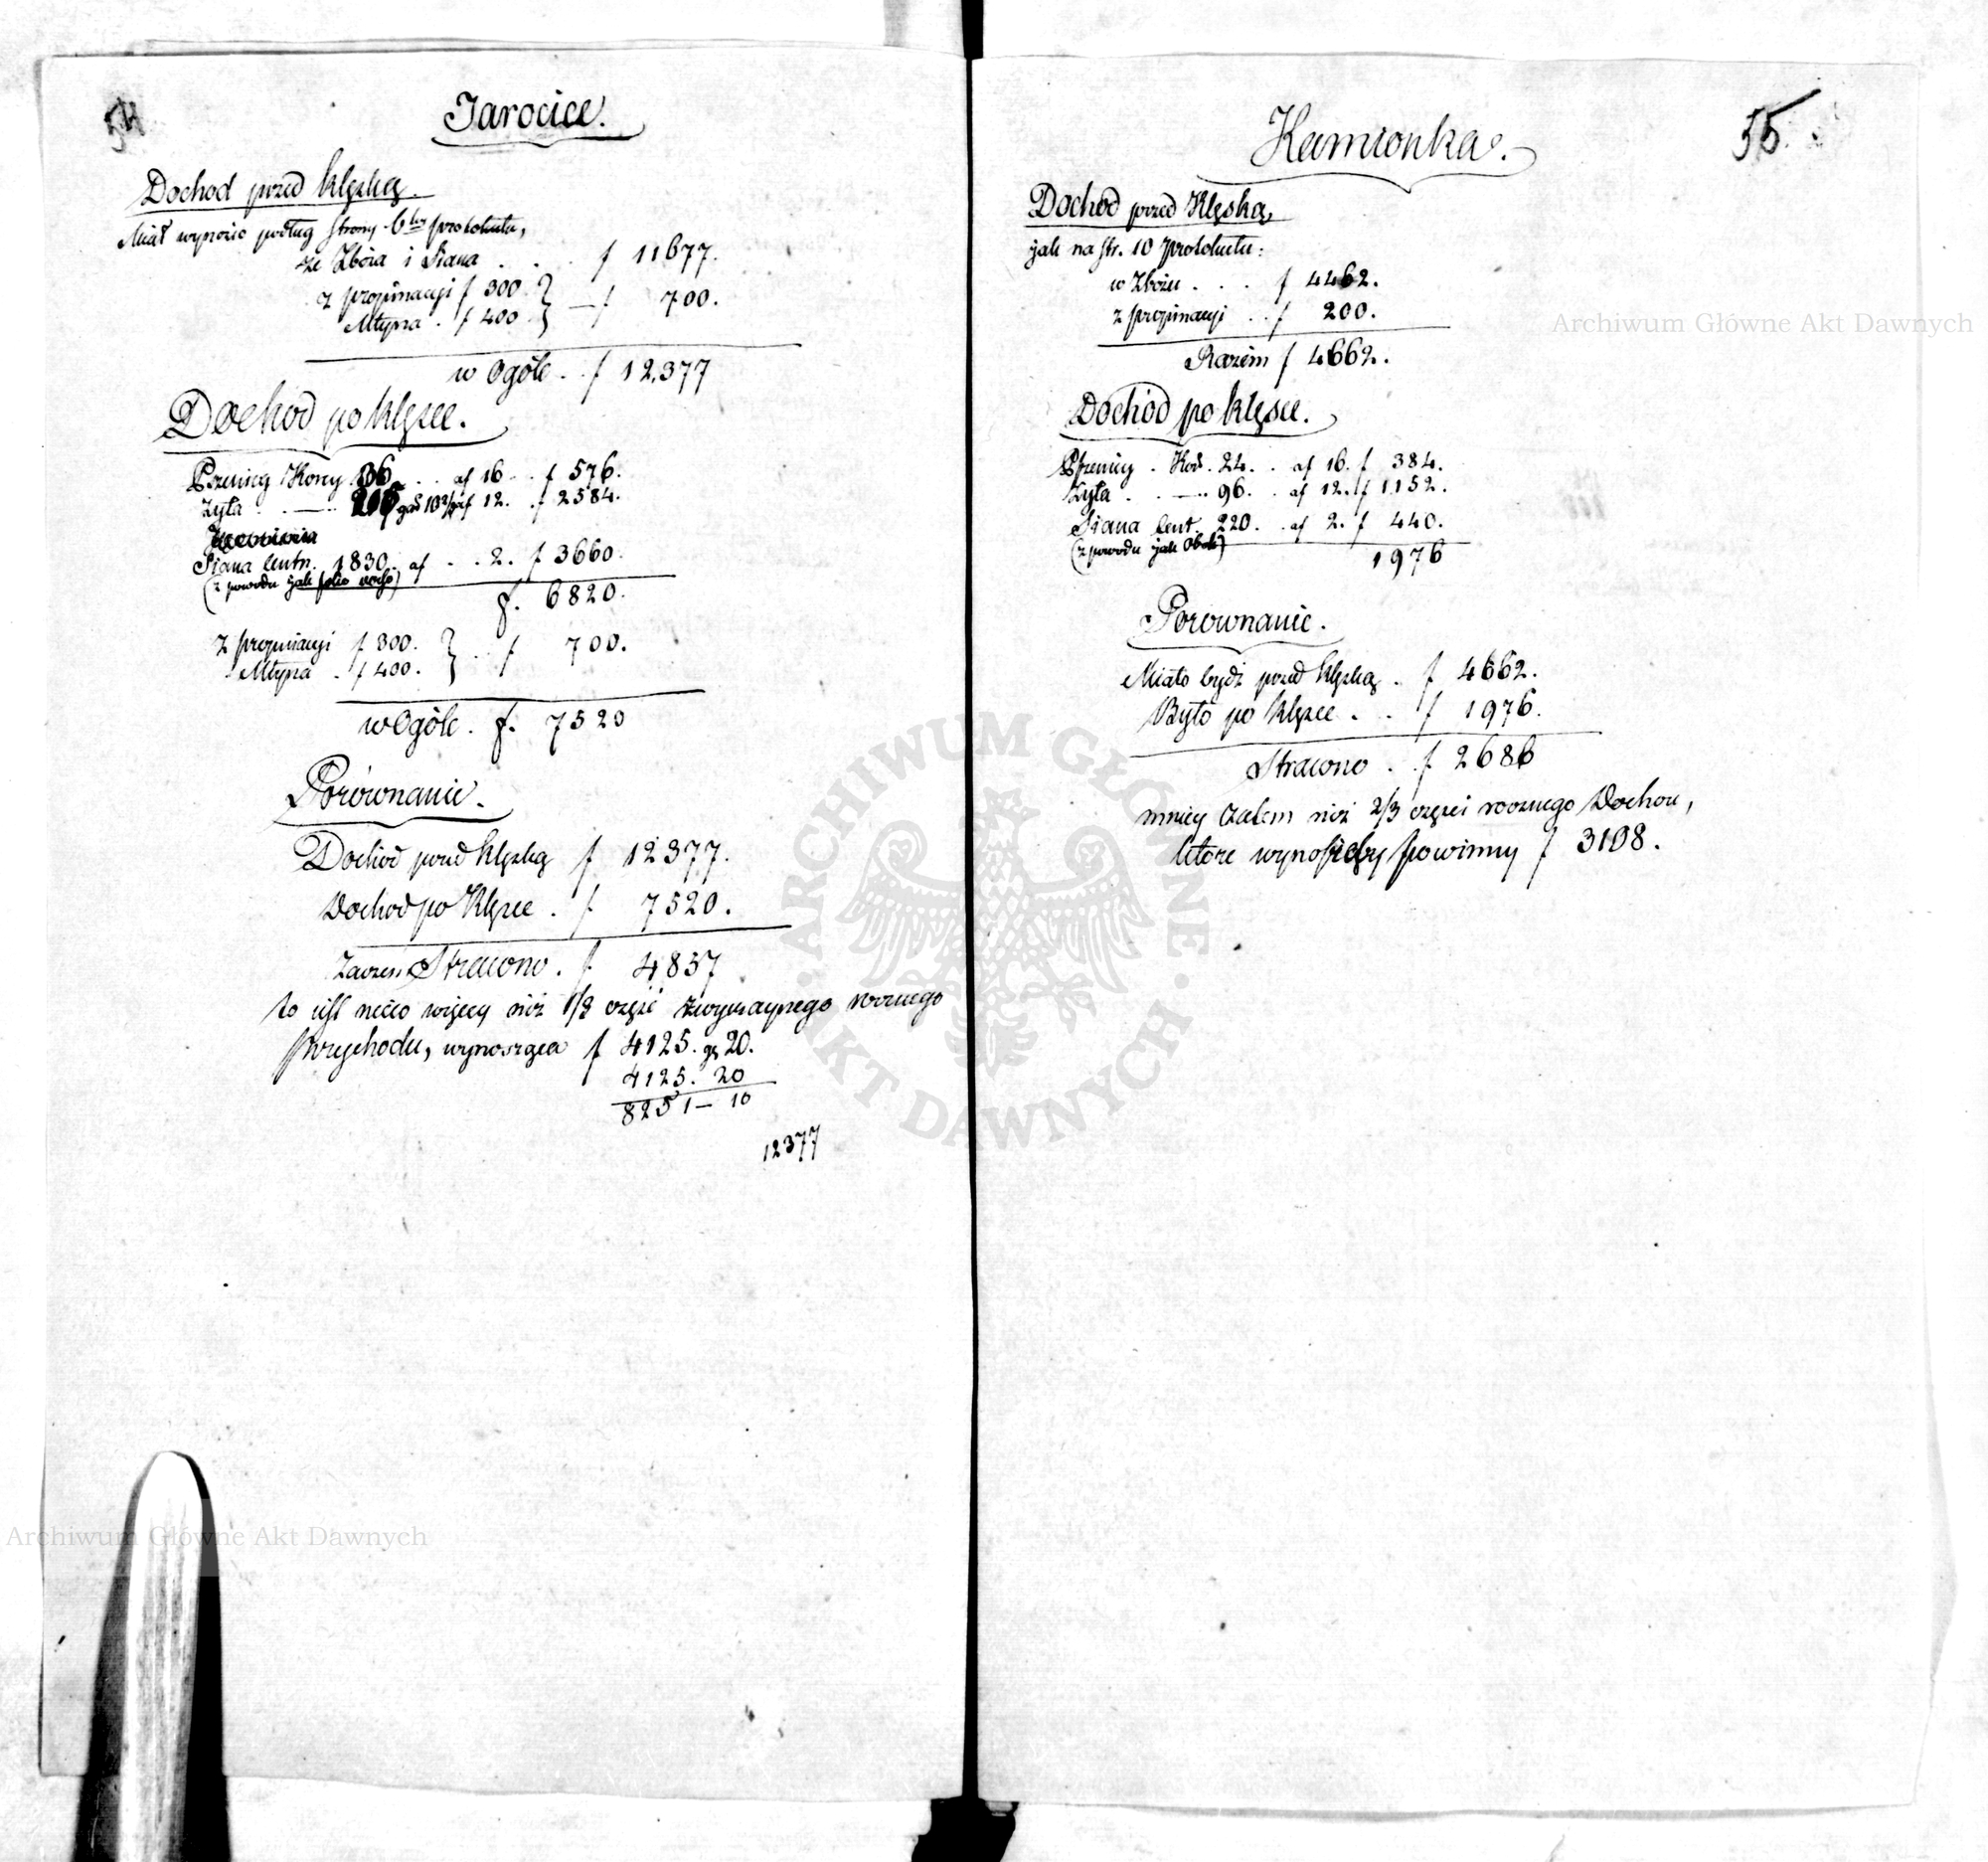 54
Jarocice.
Dochod przed klęską.
Miał wynosić podług strony 6tey protokułu,
ze Zboża i Siana . . . f 11677.
z propinacyi f 300. } — f 700.
Młyna . f 400
w Ogóle . . f 12,377
Dochod po klęsce.
Pszenicy Korcy 36 . . af 16 . . f 576.
Żyta . . — 215 af 12. . f 2584.
Siana Centn. 1830. af . . 2. f 3660.
(z powodu jak folio verso)
f. 6820.
z propinacyi f 300. } . f 700.
Młyna . f 400.
w Ogóle . f. 7520
Porównanie.
Dochod przed klęską f 12377.
Dochod po Klęsce . f 7520.
Stracono . f 4857
to jest nieco więcey niż 1/3 część zwyczaynego rocznego
przychodu, wynosząca f 4125. gr 20.
4125. 20
8251 — 10
12377
55.
Kamionka.
Dochod przed Klęską,
jak na str. 10 protokułu:
w Zbożu . . . f 4462.
z propinacyi . . f 200.
Razem f 4662.
Dochod po klęsce.
Pszenicy . Kor. 24. . af 16. f 384.
Żyta . . — 96. . af 12. f 1152.
Siana Cent. 220. . af 2. f 440.
(z powodu jak Obok)
1976
Porownanie.
Miało bydź przed klęską . f 4662.
Było po klęsce . . f 1976.
Stracono . . f 2686
mniey zatem niż 2/3 części rocznego Dochou,
które wynosićby powinny f 3108.
Archiwum Główne Akt Dawnych
Archiwum Główne Akt Dawnych
ARCHIWUM GŁÓWNE AKT DAWNYCH